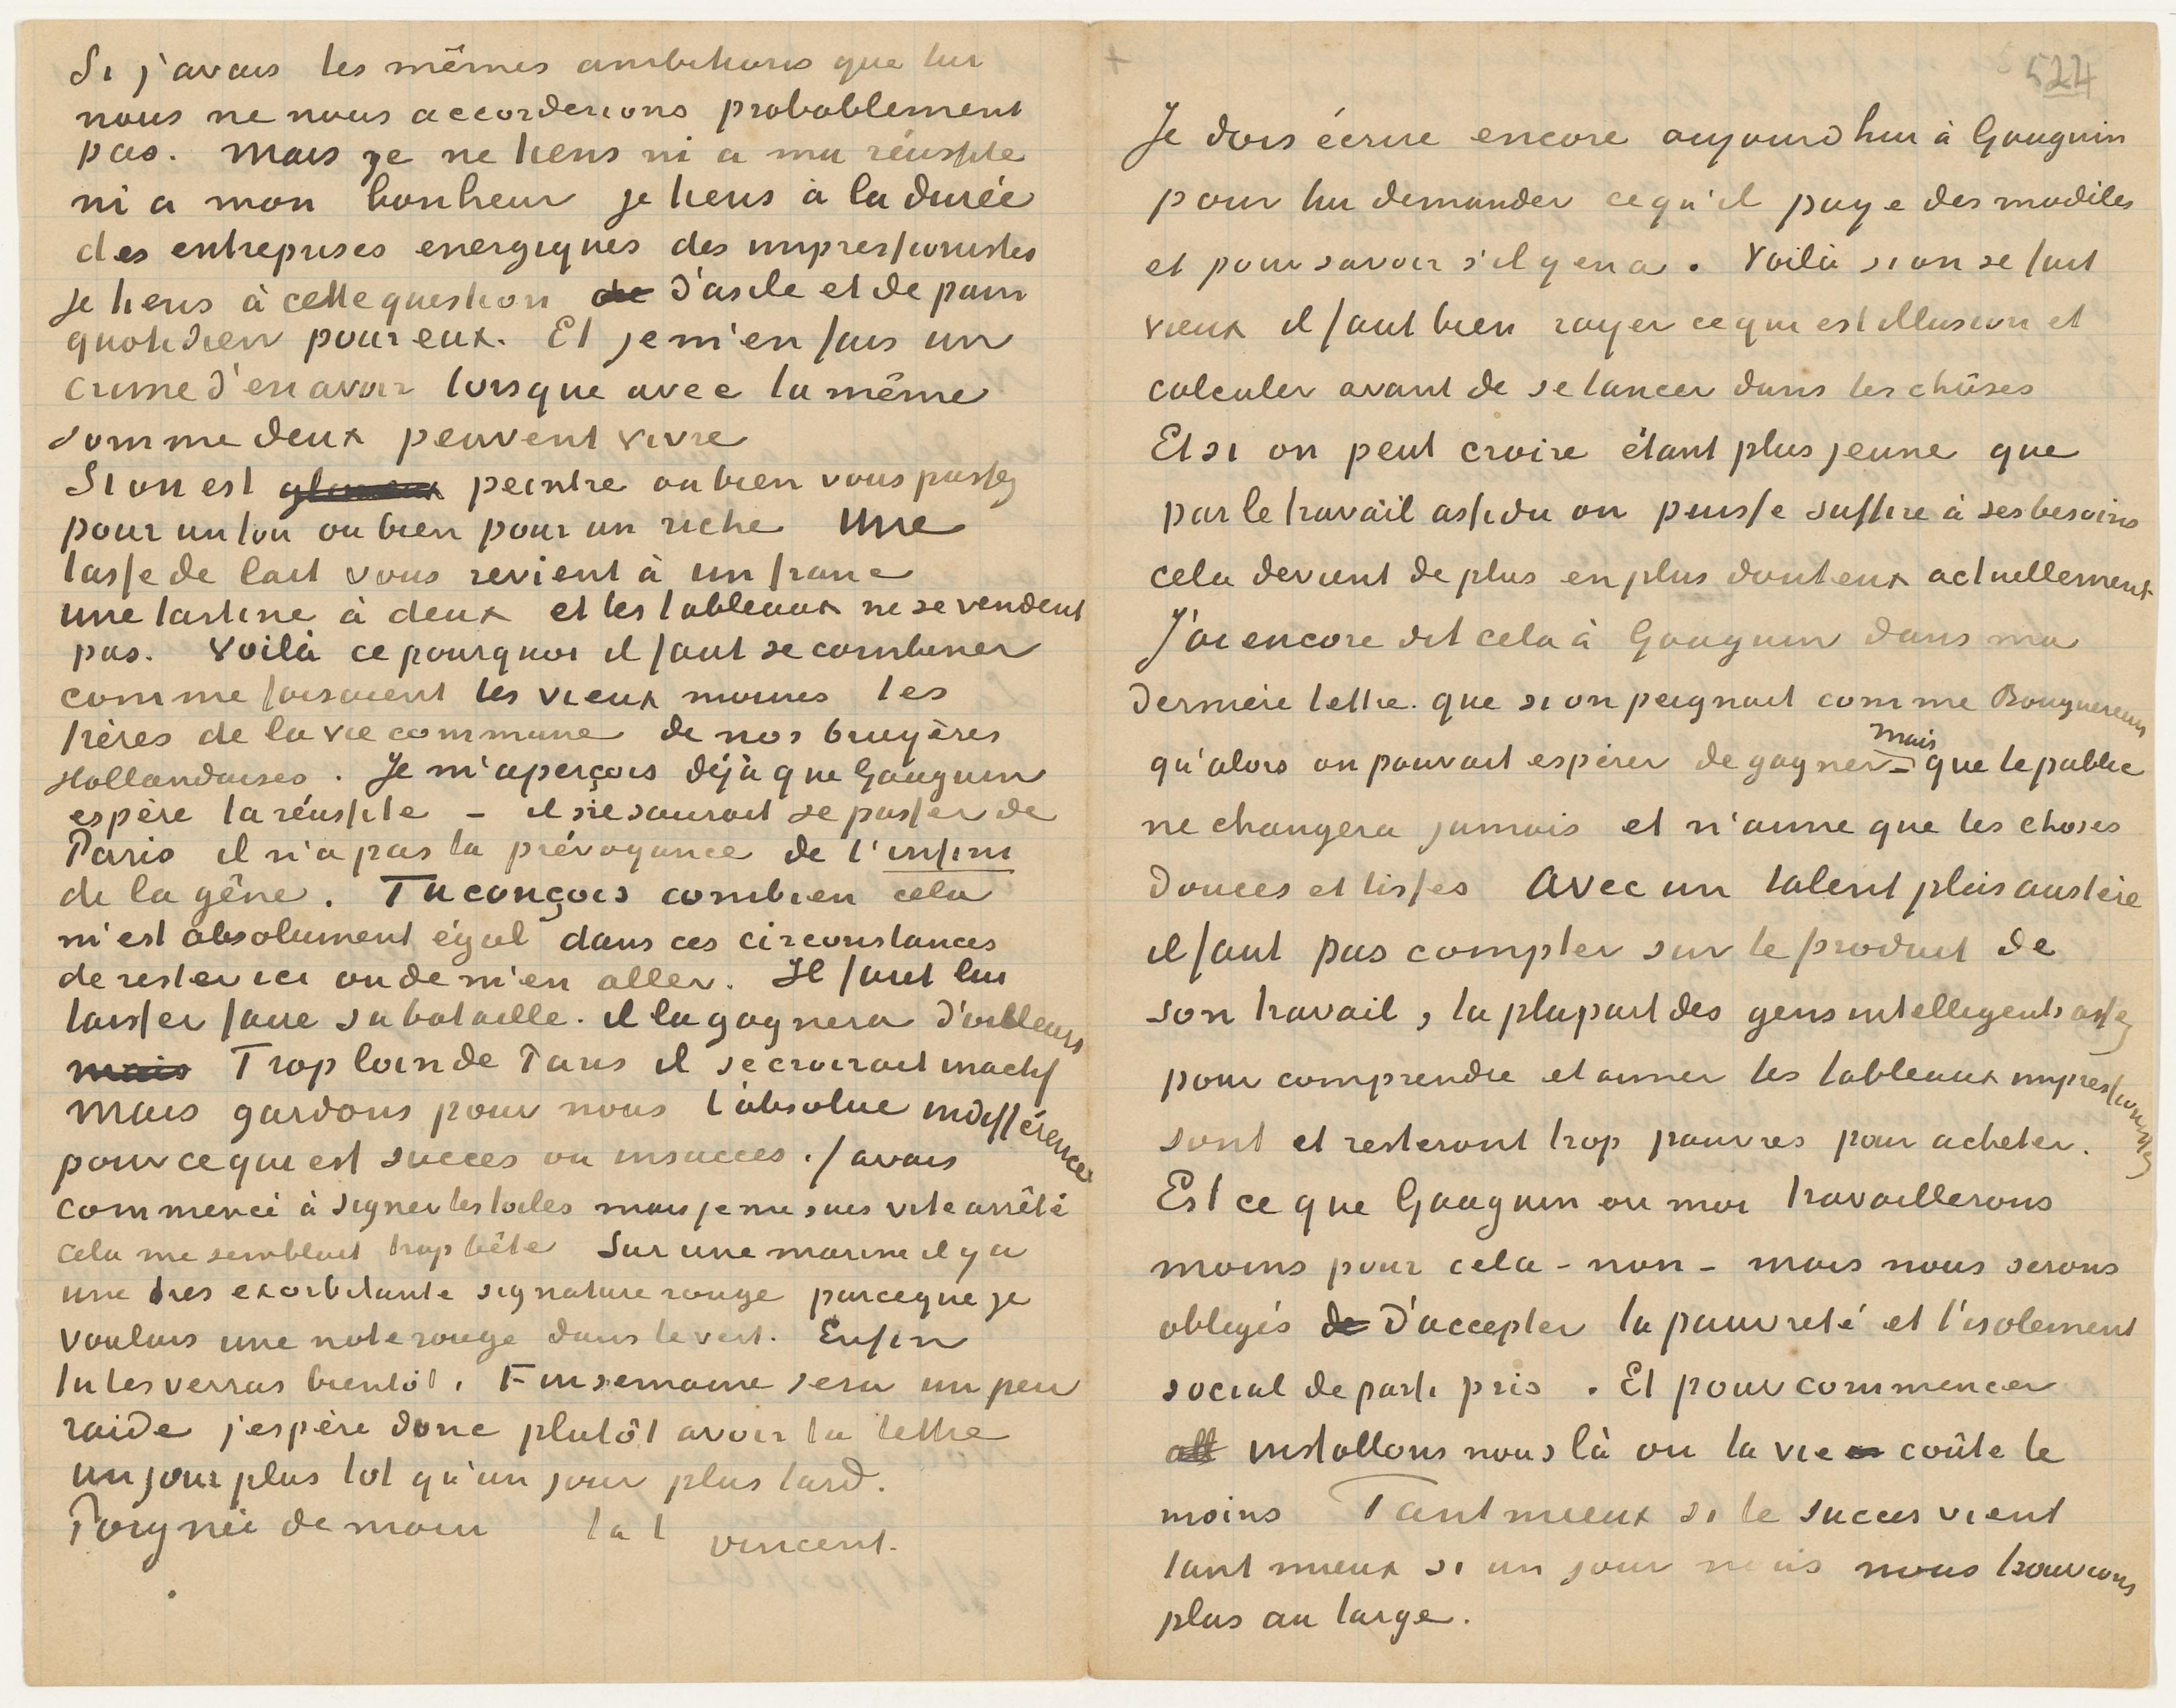 Si j'avais les mêmes ambitions que lui
nous ne nous accorderions probablement
pas. Mais je ne tiens ni a ma réussite
ni a mon bonheur je tiens à la durée
des entreprises energiques des impressionistes
je tiens à cette question de d'asile et de pain
quotidien pour eux. Et je m'en fais un
crime d'en avoir lorsque avec la même
somme deux peuvent vivre
Si on est peintre ou bien vous passez
pour un fou ou bien pour un riche Une
tasse de lait vous revient à un franc
une tartine à deux et les tableaux ne se vendent
pas. Voilà ce pourquoi il faut se combiner
comme faisaient les vieux moines les
frères de la vie commune de nos bruyères
Hollandaises. Je m'aperçois déjà que Gauguin
espère la réussite – il ne saurait se passer de
Paris il n'a pas la prévoyance de l'infini
de la gêne. Tu conçois combien cela
m'est absolument égal dans ces circonstances
de rester ici ou de m'en aller. Il faut lui
laisser faire sa bataille. il la gagnera d'ailleurs
mais Trop loin de Paris il se croirait inactif
Mais gardons pour nous l'absolue indifférence
pour ce qui est succes ou insucces. J'avais
commencé à signer les toiles mais je me suis vite arrêté
cela me semblait trop bête Sur une marine il y a
une tres exorbitante signature rouge parceque je
voulais une note rouge dans le vert. Enfin
tu les verras bientôt. Fin semaine sera un peu
raide j'espère donc plutôt avoir ta lettre
un jour plus tot qu'un jour plus tard.
Poignée de main t à t Vincent.
524
Je dois écrire encore aujourd hui à Gauguin
pour lui demander ce qu'il paye des modèles
et pour savoir s'il y en a. Voilà si on se fait
vieux il faut bien rayer ce qui est illusion et
calculer avant de se lancer dans les chôses
Et si on peut croire étant plus jeune que
par le travail assidu on puisse suffire à ses besoins
cela devient de plus en plus douteux actuellement
J'ai encore dit cela à Gauguin dans ma
dernière lettre. que si on peignait comme Bouguereau
qu'alors on pouvait espérer de gagner – mais que le public
ne changera jamais et n'aime que les choses
douces et lisses Avec un talent plus austère
il faut pas compter sur le produit de
son travail, la plupart des gens intelligents assez
pour comprendre et aimer les tableaux impressionistes
sont et resteront trop pauvres pour acheter.
Est ce que Gauguin ou moi travaillerons
moins pour cela – non – mais nous serons
obligés de D'accepter la pauvreté et l'isolement
social de parti pris. Et pour commencer
installons nous là ou la vie coûte le
moins Tant mieux si le succes vient
tant mieux si un jour nous nous trouvions
plus au large.